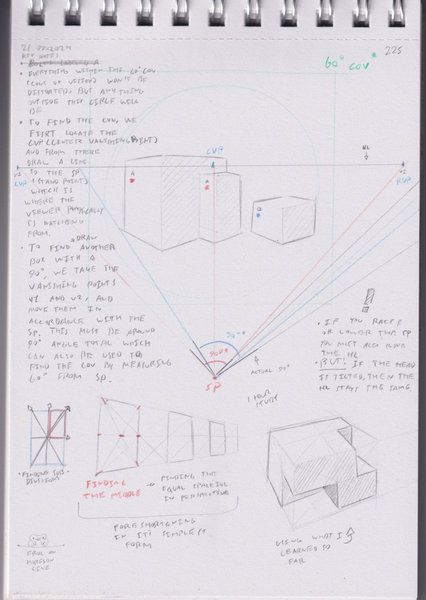 225
60° COV
EVERYTHING WITHIN THE 60° COV
(CONE OF VISION) WON'T BE
DISTORTED, BUT ANYTHING
OUTSIDE THIS CIRCLE WILL
BE
TO FIND THE COV, WE
FIRST LOCATE THE
CVP (CENTER VANISHING POINT)
AND FROM THERE
DRAW A LINE
TO THE SP
(STAND POINT)
WHICH IS
WHERE THE
VIEWER PHYSICALLY
IS WATCHING
FROM.
DRAW
TO FIND ANOTHER
BOX WITH A
90°, WE TAKE THE
VANISHING POINTS
V1 AND V2, AND
MOVE THEM IN
ACCORDANCE WITH THE
SP. THIS MUST BE AROUND
90° ANGLE TOTAL WHICH
CAN ALSO BE USED TO
FIND THE COV BY MEASURING
60° FROM SP.
CVP
HL
V1
LVP
V2
RVP
A
A
SP
ACTUAL 90°
1 HOUR
STUDY
IF YOU RAISE
OR LOWER THE SP
YOU MUST ALSO
THE HL
BUT! IF THE HEAD
IS TILTED, THEN THE
HL STAYS THE SAME.
FINDING SUB-
DIVISIONS
FINDING
THE MIDDLE
FINDING THE
EQUAL SPACING
IN PERSPECTIVE
FORESHORTENING
IN ITS SIMPLEST
FORM
USING WHAT I
LEARNED SO
FAR